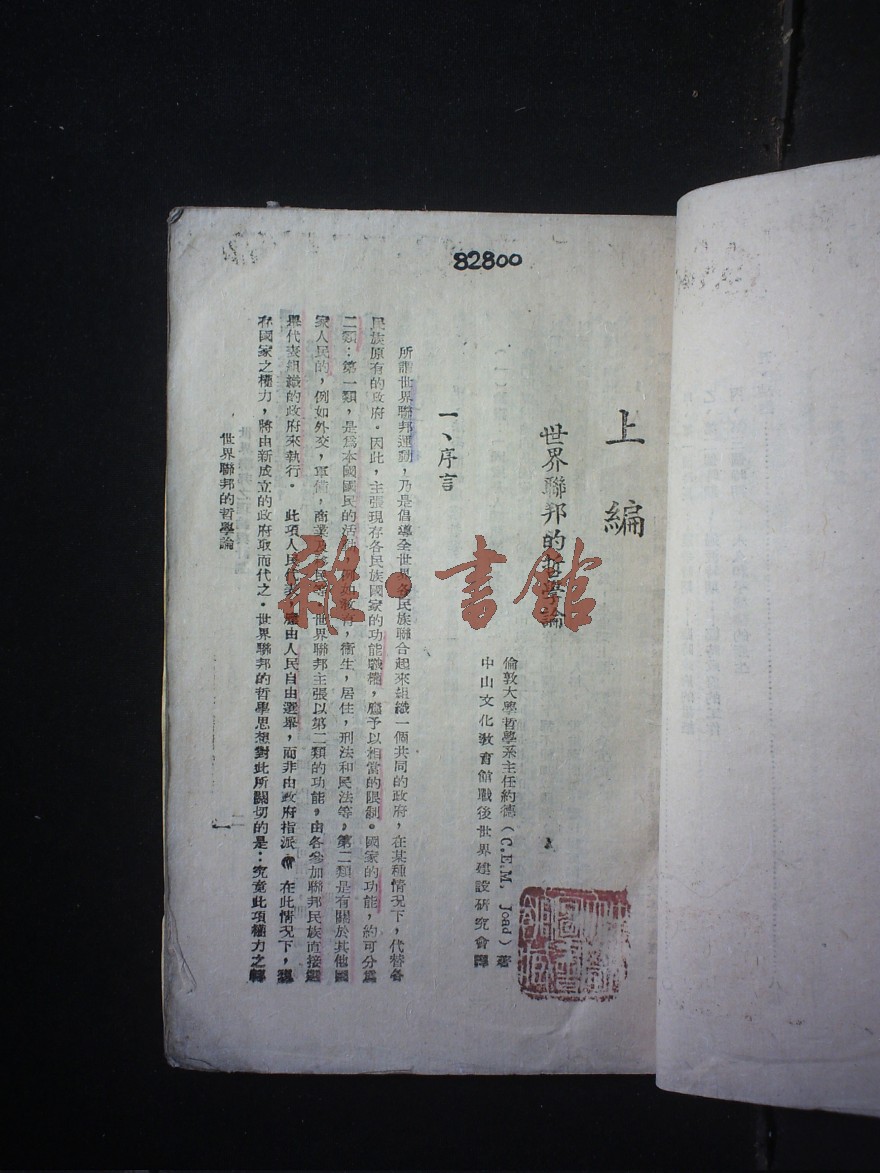 82800
上編
世界聯邦的哲學論
倫敦大學哲學系主任約德（C.E.M. Joad）著
中山文化教育館戰後世界建設研究會譯
一、序言
所謂世界聯邦運動，乃是倡導全世界各民族聯合起來組織一個共同的政府，在某種情況下，代替各
民族原有的政府。因此，主張現存各民族國家的功能職權，應予以相當的限制。國家的功能，約可分為
二類：第一類，是為本國國民的活動，例如教育，衛生，居住，刑法和民法等，第二類是有關於其他國
家人民的，例如外交，軍備，商業及移民等。世界聯邦主張以第二類的功能，由各參加聯邦民族直接選
舉代表組織的政府來執行。此項人民代表，應由人民自由選舉，而非由政府指派。在此情況下，現
存國家之權力，將由新成立的政府取而代之。世界聯邦的哲學思想對此所關切的是：究竟此項權力之轉
世界聯邦的哲學論
一
雜·書館